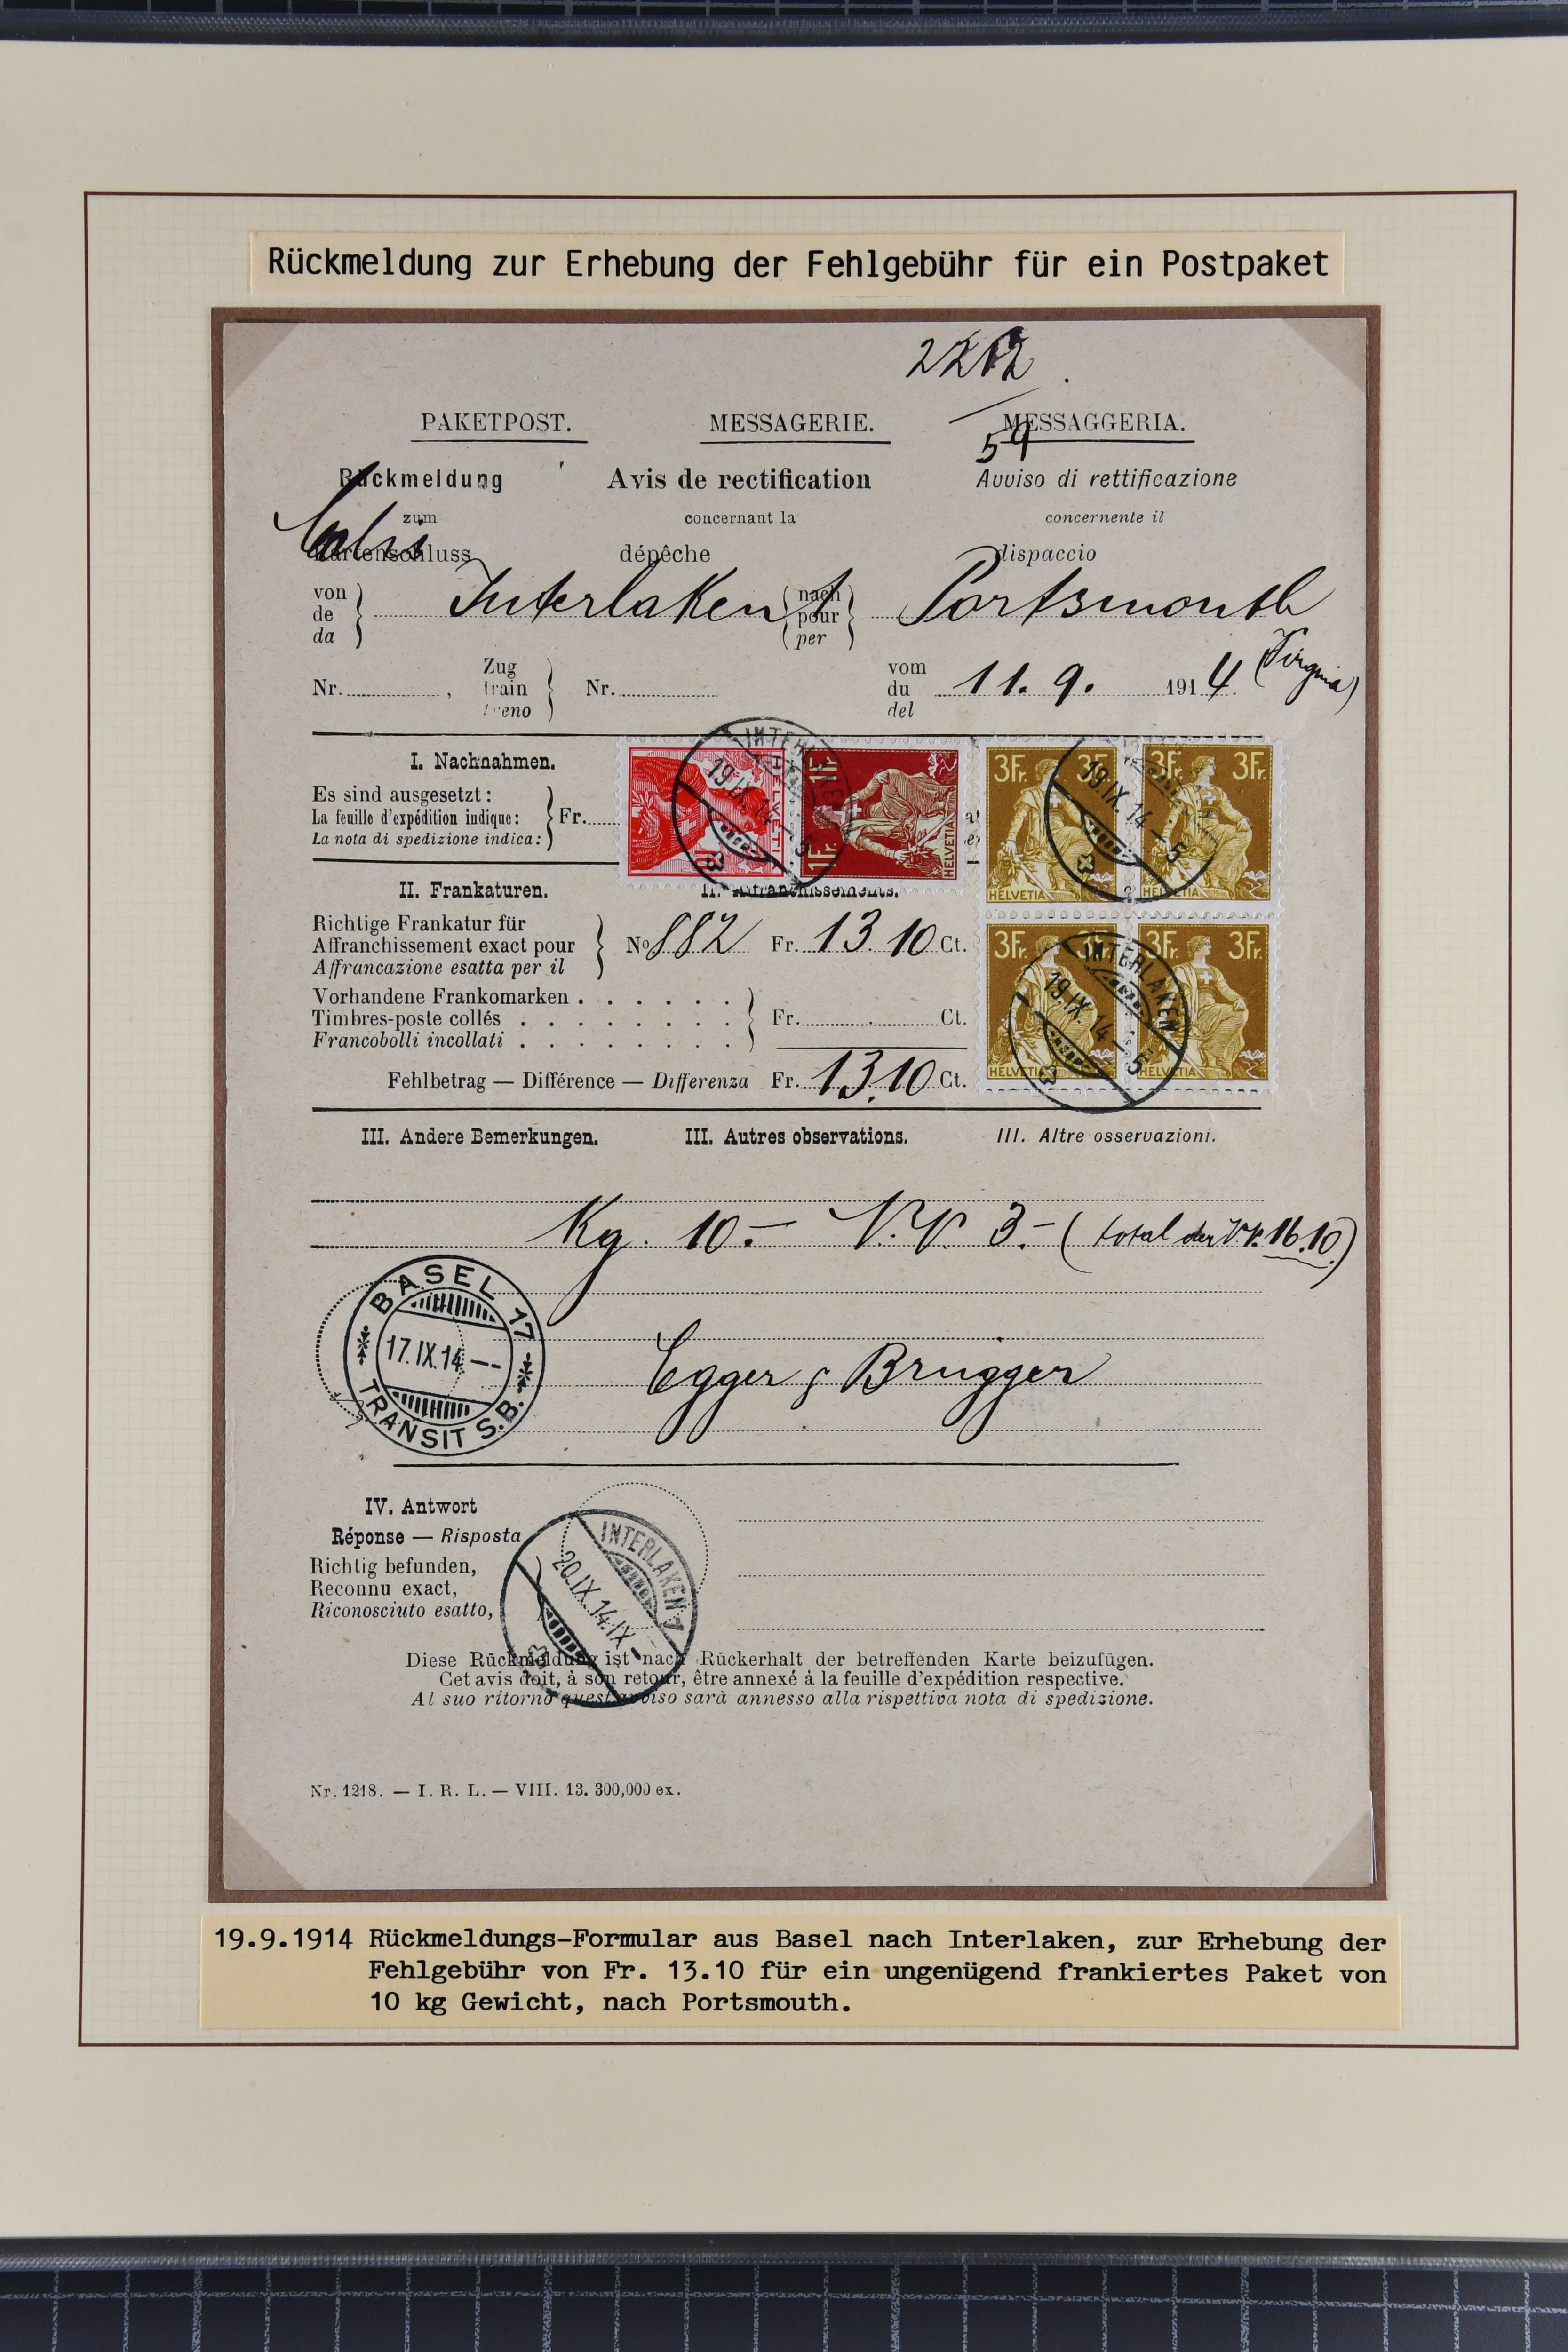 Rückmeldung zur Erhebung der Fehlgebühr für ein Postpaket
PAKETPOST. MESSAGERIE. MESSAGGERIA.
59
Rückmeldung Avis de rectification Avviso di rettificazione
zum concernant la concernente il
Kartenschluss dépêche dispaccio
von
de
da
Interlaken 1
nach
pour
per
Portsmouth
(Virginia)
Nr. , Zug
train
treno
Nr.
vom
du
del
11. 9. 1914
I. Nachnahmen.
Es sind ausgesetzt:
La feuille d'expédition indique:
La nota di spedizione indica:
Fr.
HELVETIA
1Fr. 1Fr. HELVETIA
3Fr. 3Fr. HELVETIA
3Fr. 3Fr. HELVETIA
3Fr. 3Fr. HELVETIA
3Fr. 3Fr. HELVETIA
INTERLAKEN
19.IX.14-5
19.IX.14-5
INTERLAKEN
19.IX.14-5
II. Frankaturen. II. Affranchissements.
Richtige Frankatur für
Affranchissement exact pour
Affrancazione esatta per il
No 882 Fr. 13.10 Ct.
Vorhandene Frankomarken
Timbres-poste collés
Francobolli incollati
Fr. Ct.
Fehlbetrag — Différence — Differenza Fr. 13.10 Ct.
III. Andere Bemerkungen. III. Autres observations. III. Altre osservazioni.
Kg. 10.- V.V. 3.- (total der V.V. 16.10)
BASEL 17
17.IX.14--
TRANSIT S.B.
Egger & Brügger
IV. Antwort
Réponse — Risposta
Richtig befunden,
Reconnu exact,
Riconosciuto esatto,
INTERLAKEN
20.IX.14.IX-
Diese Rückmeldung ist nach Rückerhalt der betreffenden Karte beizufügen.
Cet avis doit, à son retour, être annexé à la feuille d'expédition respective.
Al suo ritorno quest'avviso sarà annesso alla rispettiva nota di spedizione.
Nr. 1218. — I. R. L. — VIII. 13. 300,000 ex.
19.9.1914 Rückmeldungs-Formular aus Basel nach Interlaken, zur Erhebung der
Fehlgebühr von Fr. 13.10 für ein ungenügend frankiertes Paket von
10 kg Gewicht, nach Portsmouth.